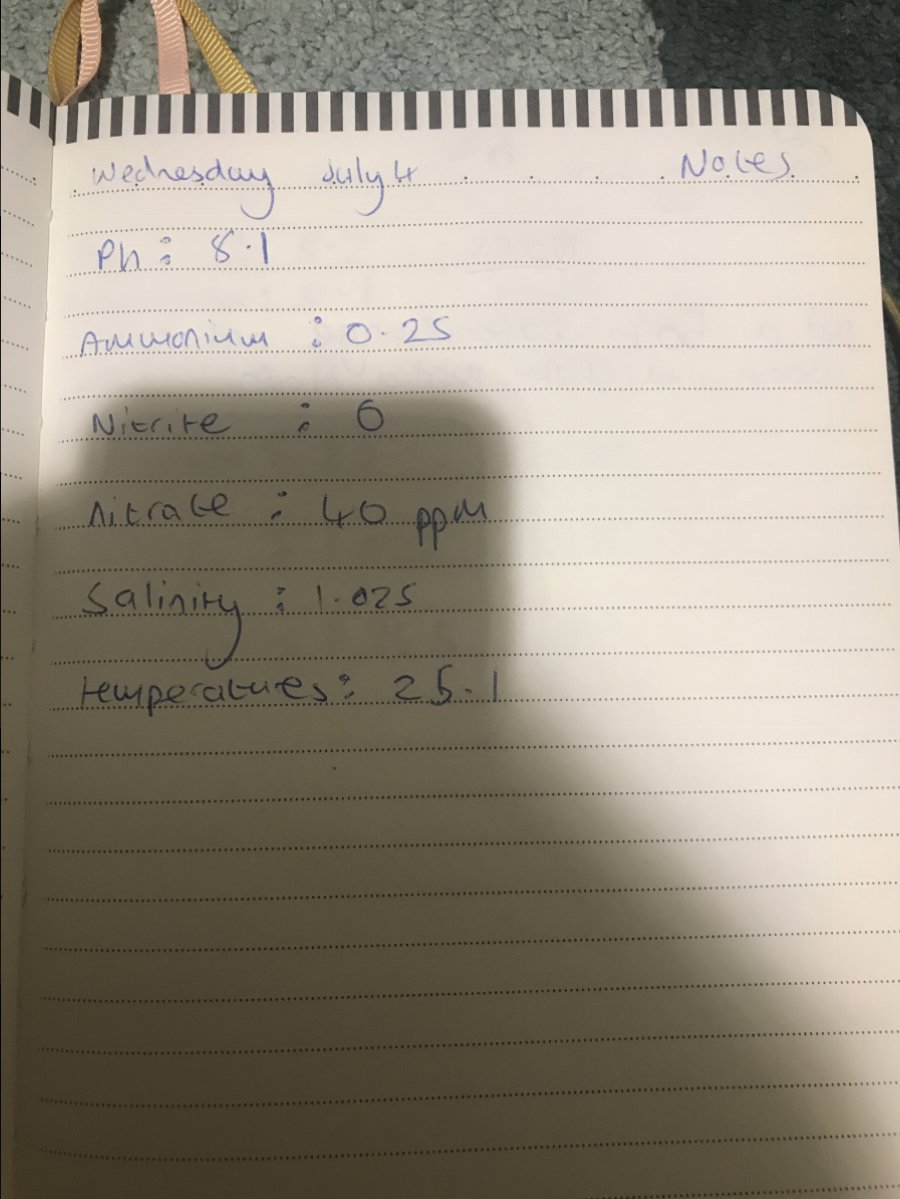 Wednesday July 4 Notes
Ph : 8.1
Ammonium : 0.25
Nitrite : 0
Nitrate : 40 ppm
Salinity : 1.025
temperatures : 25.1